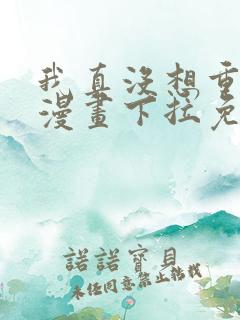 我真没想重
漫畫下拉免
諾諾寶貝
未任同意禁止转载